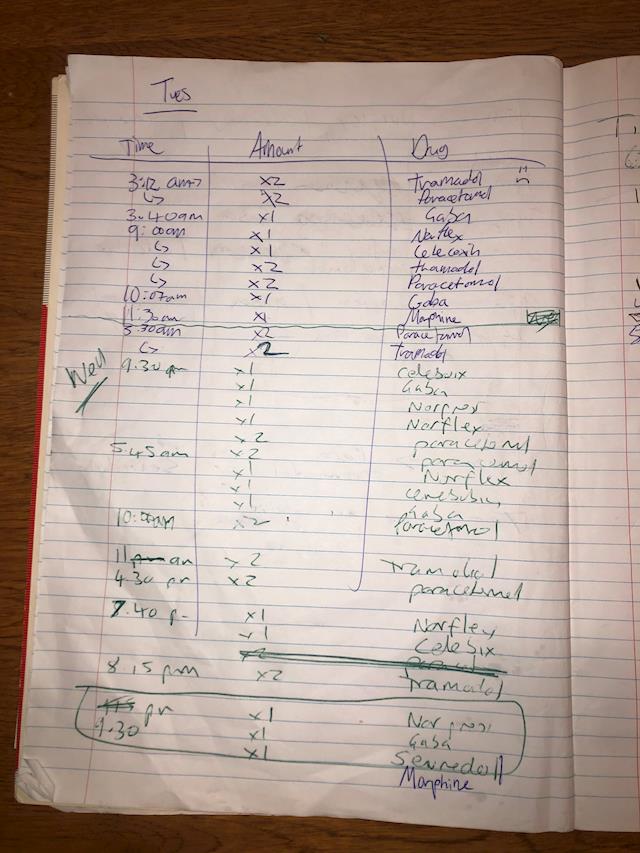 Tues
Time Amount Drug
3:12 am x2 Tramadol
↳ x2 Paracetamol
3.40am x1 Gaba
9:00am x1 Norflex
↳ x1 Celecoxib
↳ x2 tramadol
↳ x2 Paracetomol
10:07am x1 Gaba
11:30am x1 Morphine
5:30am x2 Paracetomol
↳ x2 Tramadol
Wed
9.30 pm x1 Celebix
x1 Gaba
x1
x1 Norflex
x2 paracetomol
5.45am x2 paracetomol
x1 Norflex
x1
x1 Gaba
10:00am x2 Paracetomol
11 am x2 Tramadol
4.30 pm x2 paracetomol
7.40 p- x1 Norflex
x1 Celebix
x2
8.15pm x2 Tramadol
pm x1
9.30 x1 Gaba
x1
Morphine